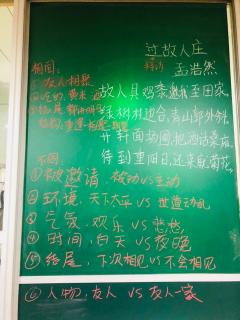 过故人庄
孟浩然
故人具鸡黍，邀我至田家。
绿树村边合，青山郭外斜。
开轩面场圃，把酒话桑麻。
待到重阳日，还来就菊花。
相同：
①友人相聚
不同：
①被邀请，被动VS主动
②环境，天下太平VS世道动乱
③气氛，欢乐VS悲愁
④时间，白天VS夜晚
⑤结尾，下次相见VS不会相见
⑥人物，友人VS友人一家